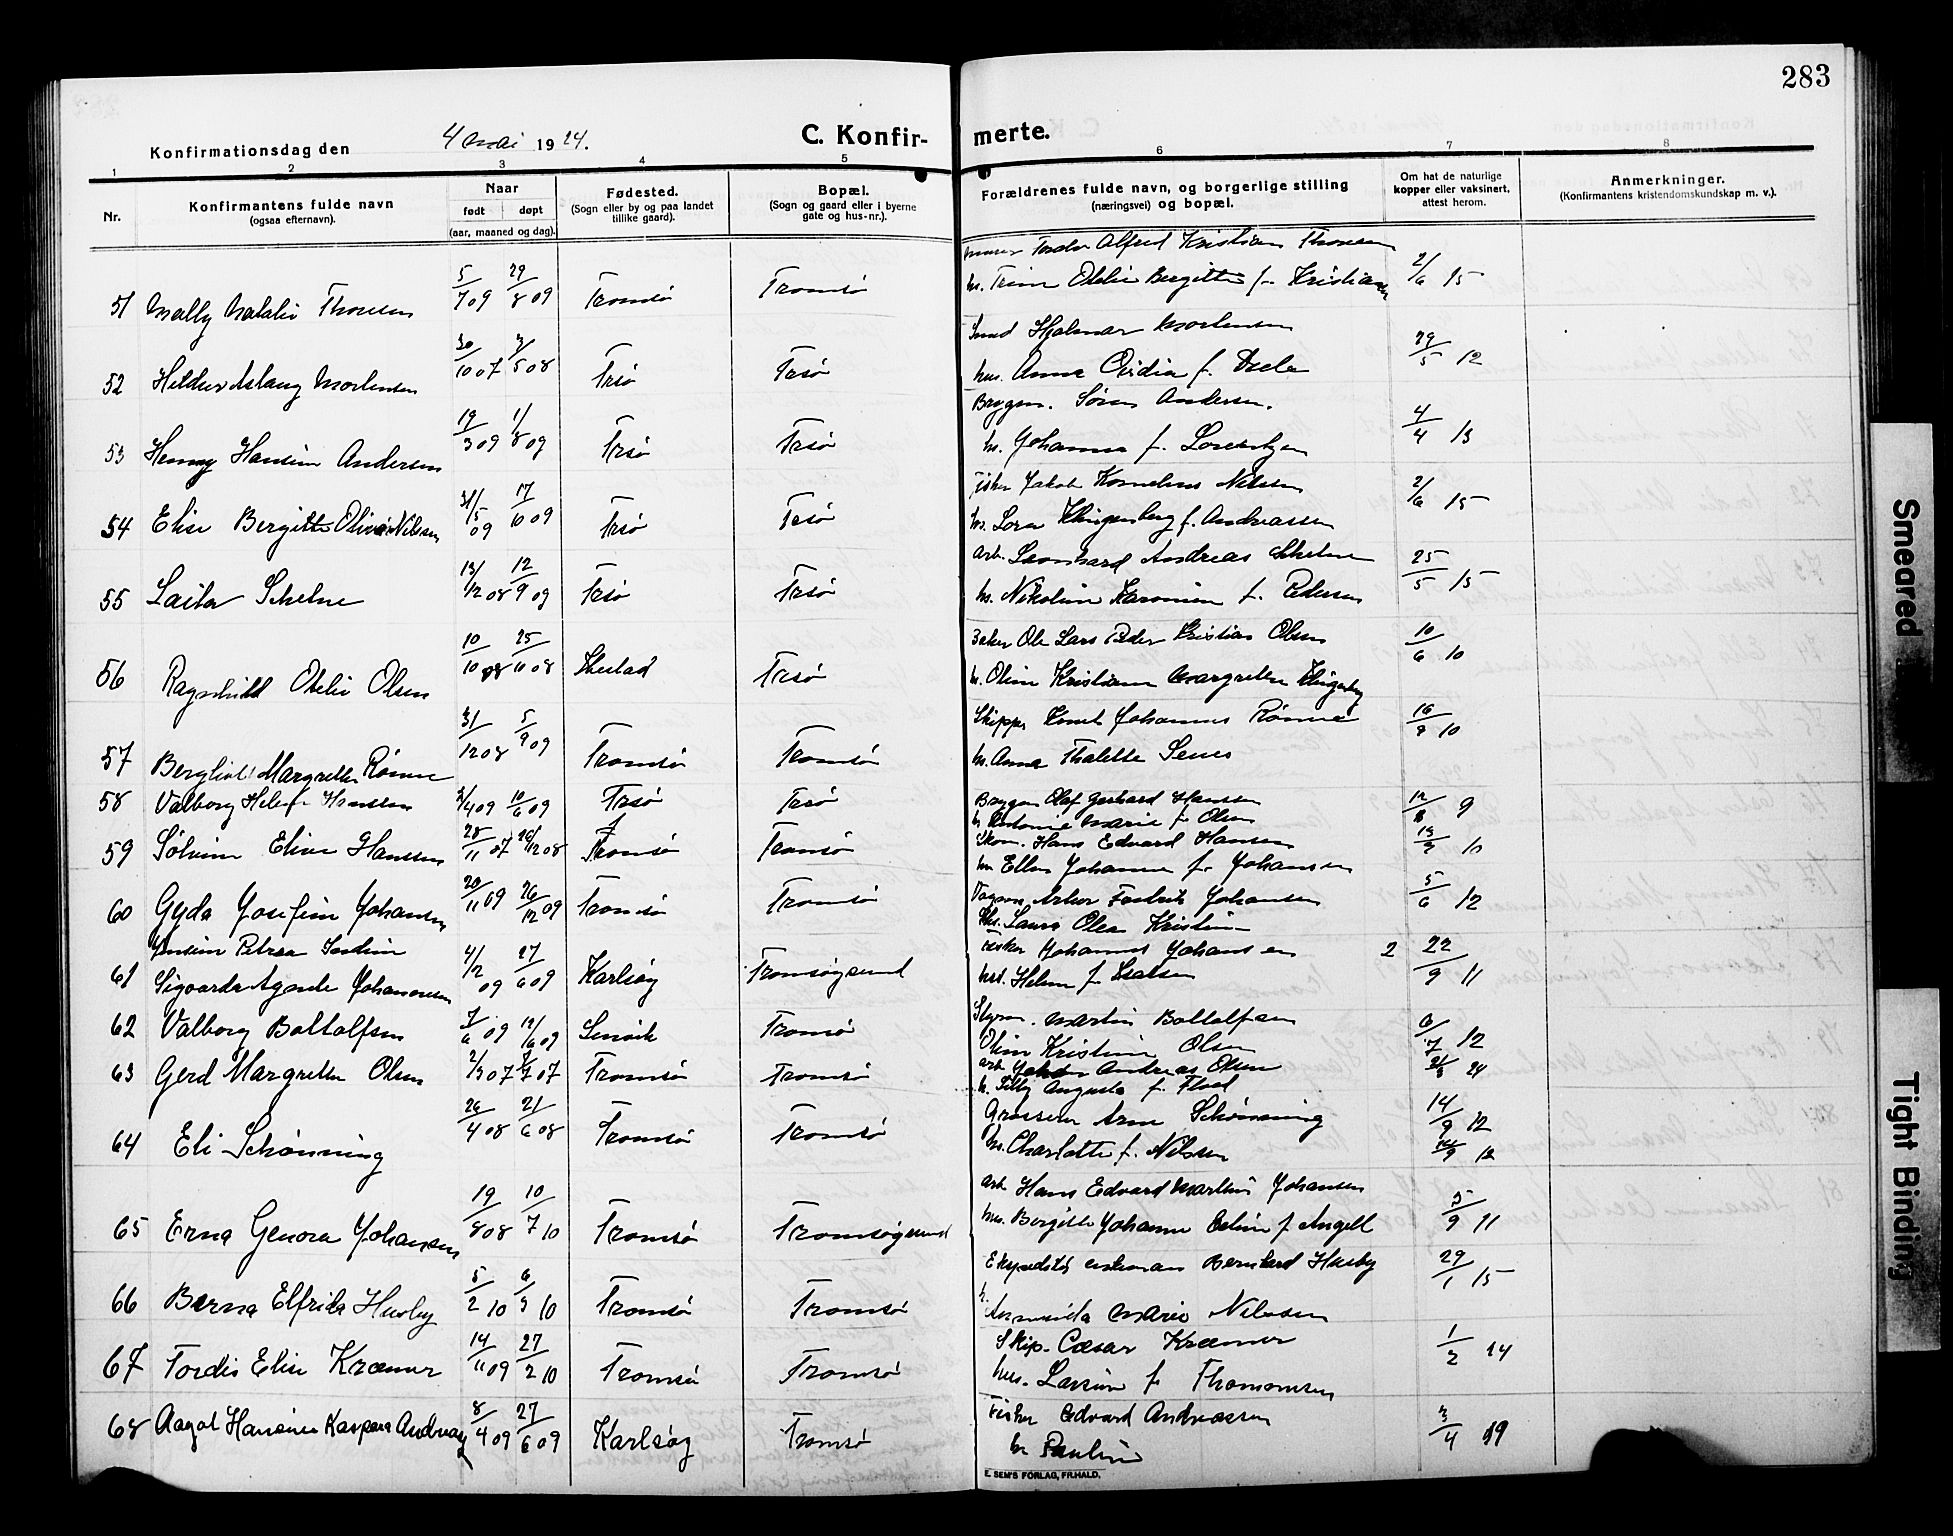 283
Konfirmationsdag den 4 mai 1924.
C. Konfirmerte.
1 2 3 4 5 6 7 8
Nr.
Konfirmantens fulde navn
(ogsaa efternavn).
Naar
født døpt
(aar, maaned og dag).
Fødested.
(Sogn eller by og paa landet
tillike gaard).
Bopæl.
(Sogn og gaard eller i byerne
gate og hus-nr.).
Forældrenes fulde navn, og borgerlige stilling
(næringsvei) og bopæl.
Om hat de naturlige
kopper eller vaksinert,
attest herom.
Anmerkninger.
(Konfirmantens kristendomskundskap m. v.).
Alfred Kristian Thoresen
51 Nally Natalie Thoresen 5/7 09 29/8 09 Tromsø Tromsø hs. Trine Otelie Bergitte f. Kristiansen 2/6 15
Smed Hjalmar Mortensen
52 Hildur Aslaug Mortensen 30/10 07 3/5 08 Trsø Trsø hus. Anna Ovidia f. 29/5 12
Søren Andersen.
53 Henny Hansine Andersen 19/3 09 1/8 09 Trsø Trsø hs. Johanna f. Lorentzen 4/4 13
Fisker Jakob Kornelius Nilsen
54 Elise Bergitte Olivie Nilsen 31/5 09 17/10 09 Trsø Trsø hs. Lora Klingenberg f. Andreassen 2/6 15
arb. Leonhard Andreas
55 Laila 13/12 08 12/9 09 Trsø Trsø hs. Nikoline f. Pedersen 25/5 15
Baker Ole Lars Peder Kristian Olsen
56 Ragnhild Otelie Olsen 10/10 08 25/10 08 Ibestad Trsø hs. Oline Kristiane Margrethe 10/6 10
Skipper Knut Johannes Rønne
57 Bergliot Margrethe Rønne 31/12 08 5/9 09 Tromsø Tromsø hs. Anna Thalette 16/9 10
58 Valborg Hansen 3/4 09 10/6 09 Trsø Trsø Olaf Gerhard Hansen
Marie f. Olsen 12/8 9
59 Sølvine Elise Hanssen 28/11 07 26/12 08 Tromsø Tromsø Skom. Hans Edvard Hansen
hu Ellen Johanna f. Johansen 13/9 10
60 Gyda Josefine Johansen 20/11 09 26/12 09 Tromsø Tromsø Johansen
Laura Olea Kristine 5/6 12
Jensine Petrea
61 Johannesen 4/2 09 27/6 09 Karlsøy Tromsøysund Fisker Johannes Johansen
hst. Helene f. Isaksen 2 22/9 11
62 Valborg Bottolfsen 7/6 09 19/6 09 Lenvik Tromsø Styrm. Martin Bottolfsen
Oline Kristine Olsen 6/7 12
63 Gerd Margrethe Olsen 2/3 07 07 Tromsø Tromsø arb. Andreas Olsen
h. Augusta f. Flod 24
64 Eli Schønning 26/4 08 21/6 08 Tromsø Tromsø Grosserer Arne Schønning 14/9 12
hs. Charlotte f. Nilsen 14/9 12
arb. Hans Edvard Martin Johansen
65 Erna Genora Johansen 19/8 08 10/7 10 Tromsø Tromsøysund hus. Bergitte Johanne f. Angell 5/9 11
Bernhard Husby
66 Berna Elfrida Husby 5/2 10 6/3 10 Tromsø Tromsø h. Marie Nilsen 29/1 15
67 Tordis Elise Kræmer 14/11 09 27/2 10 Tromsø Tromsø Skip. Cæsar Kræmer
hus. Larsine f. Thomassen 1/2 14
68 Aagot Hansine Kaspara Andreas 8/4 09 27/6 09 Karlsøy Tromsø Fisker Edvard Andreassen
hs Pauline 3/4 19
E. SEM'S FORLAG, FR.HALD.
Smeared
Tight Binding